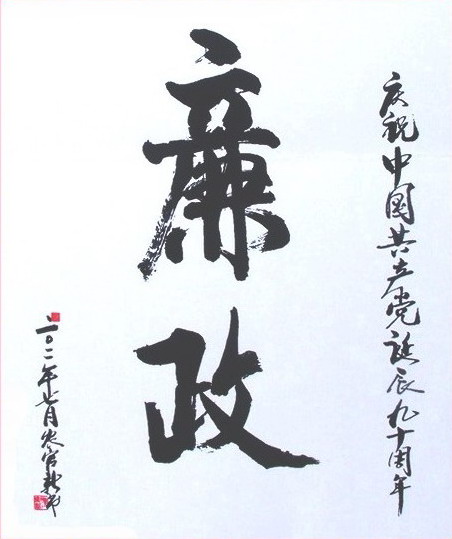 庆祝中国共产党诞辰九十周年
廉政
二〇一一年七月